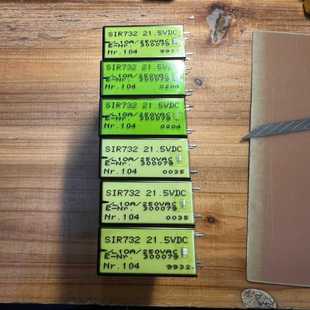 SIR732 21.5VDC
E-Nr. 300079
Nr.104 9932
SIR732 21.5VDC
10A/250VAC
E-Nr. 300079
Nr.104 0204
SIR732 21.5VDC
10A/250VAC
E-Nr. 300079
Nr.104 0204
SIR732 21.5VDC
10A/250VAC
E-Nr. 300079
Nr.104 0035
SIR732 21.5VDC
10A/250VAC
E-Nr. 300079
Nr.104 0035
SIR732 21.5VDC
10A/250VAC
E-Nr. 300079
Nr.104 9932